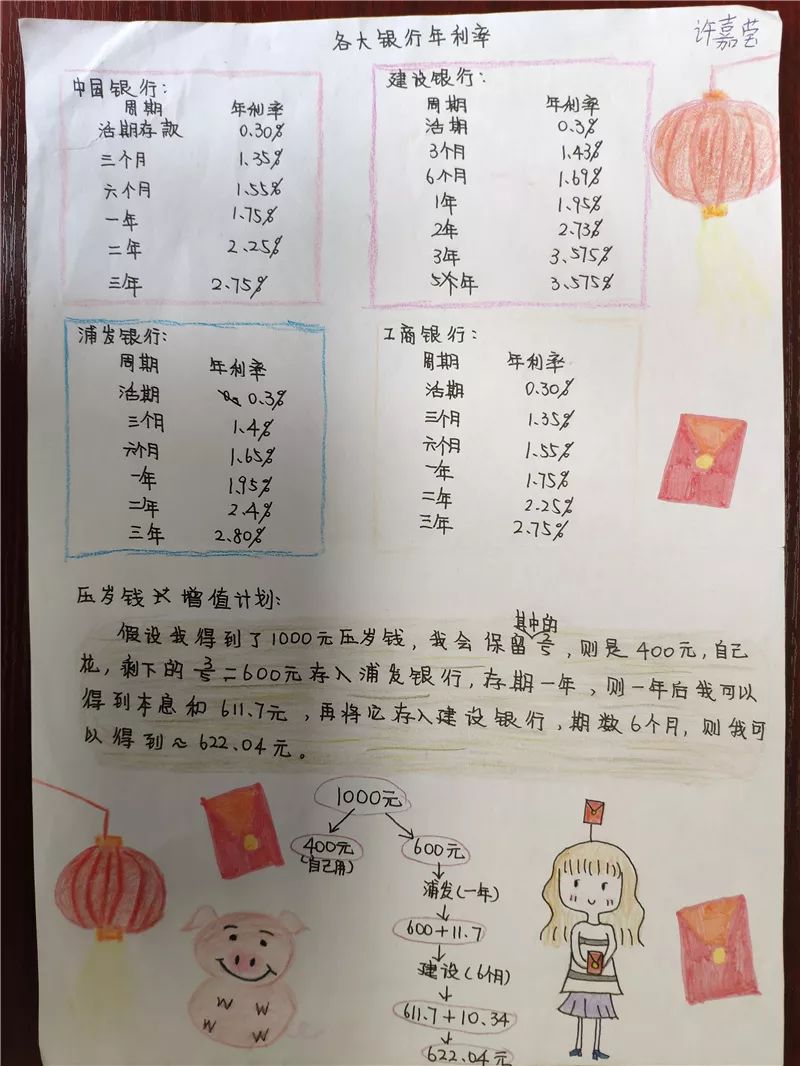 各大银行年利率
许嘉莹
中国银行:
周期 年利率
活期存款 0.30%
三个月 1.35%
六个月 1.55%
一年 1.75%
二年 2.25%
三年 2.75%
建设银行:
周期 年利率
活期 0.3%
3个月 1.43%
6个月 1.69%
1年 1.95%
2年 2.73%
3年 3.575%
5个年 3.575%
浦发银行:
周期 年利率
活期 0.3%
三个月 1.4%
六个月 1.65%
一年 1.95%
二年 2.4%
三年 2.80%
工商银行:
周期 年利率
活期 0.30%
三个月 1.35%
六个月 1.55%
一年 1.75%
二年 2.25%
三年 2.75%
压岁钱 增值计划:
假设我得到了1000元压岁钱,我会保留其中的2/5,则是400元,自己
花,剩下的3/5=600元存入浦发银行,存期一年,则一年后我可以
得到本息和611.7元,再将它存入建设银行,期数6个月,则我可
以得到≈622.04元。
1000元
400元
(自己用)
600元
浦发(一年)
600+11.7
建设(6个月)
611.7+10.34
622.04元